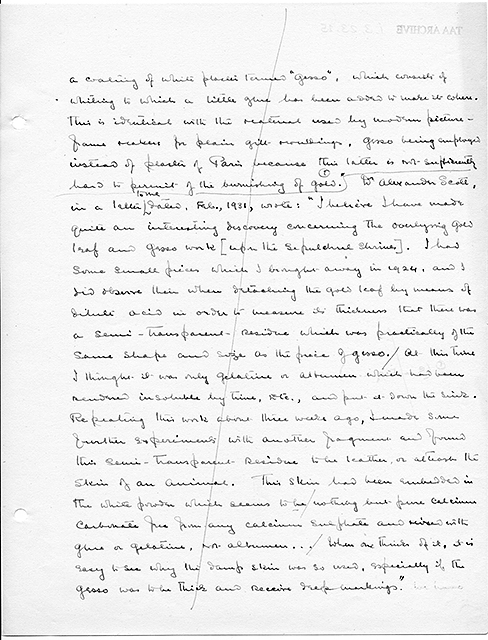 TAA ARCHIVE
a coating of white plaster termed "gesso", which consists of
whiting to which a little glue has been added to make it cohere.
This is identical with the material used by modern picture-
frame makers for plain gilt mouldings, gesso being employed
instead of plaster of Paris because this latter is not sufficiently
hard to permit of the burnishing of gold." Dr Alexander Scott,
in a letter to me dated, Feb., 1931, wrote: "I believe I have made
quite an interesting discovery concerning the overlying gold
leaf and gesso work [upon the sepulchral shrines]. I had
some small pieces which I brought away in 1924, and I
did observe then when detaching the gold leaf by means of
dilute acid in order to measure its thickness that there was
a semi-transparent residue which was practically of the
same shape and size as the piece of gesso. At this time
I thought it was only gelatine or albumen which had been
rendered insoluble by time, etc., and put it down the sink.
Repeating this work about three weeks ago, I made some
further experiments with another fragment and found
this semi-transparent residue to be leather, or at least the
skin of an animal. This skin had been embedded in
the white powder which seems to be nothing but pure calcium
carbonate free from any calcium sulphate and mixed with
glue or gelatine, not albumen... When one thinks of it, it is
easy to see why the damp skin was so used, especially if the
gesso was to be thick and receive deep markings."